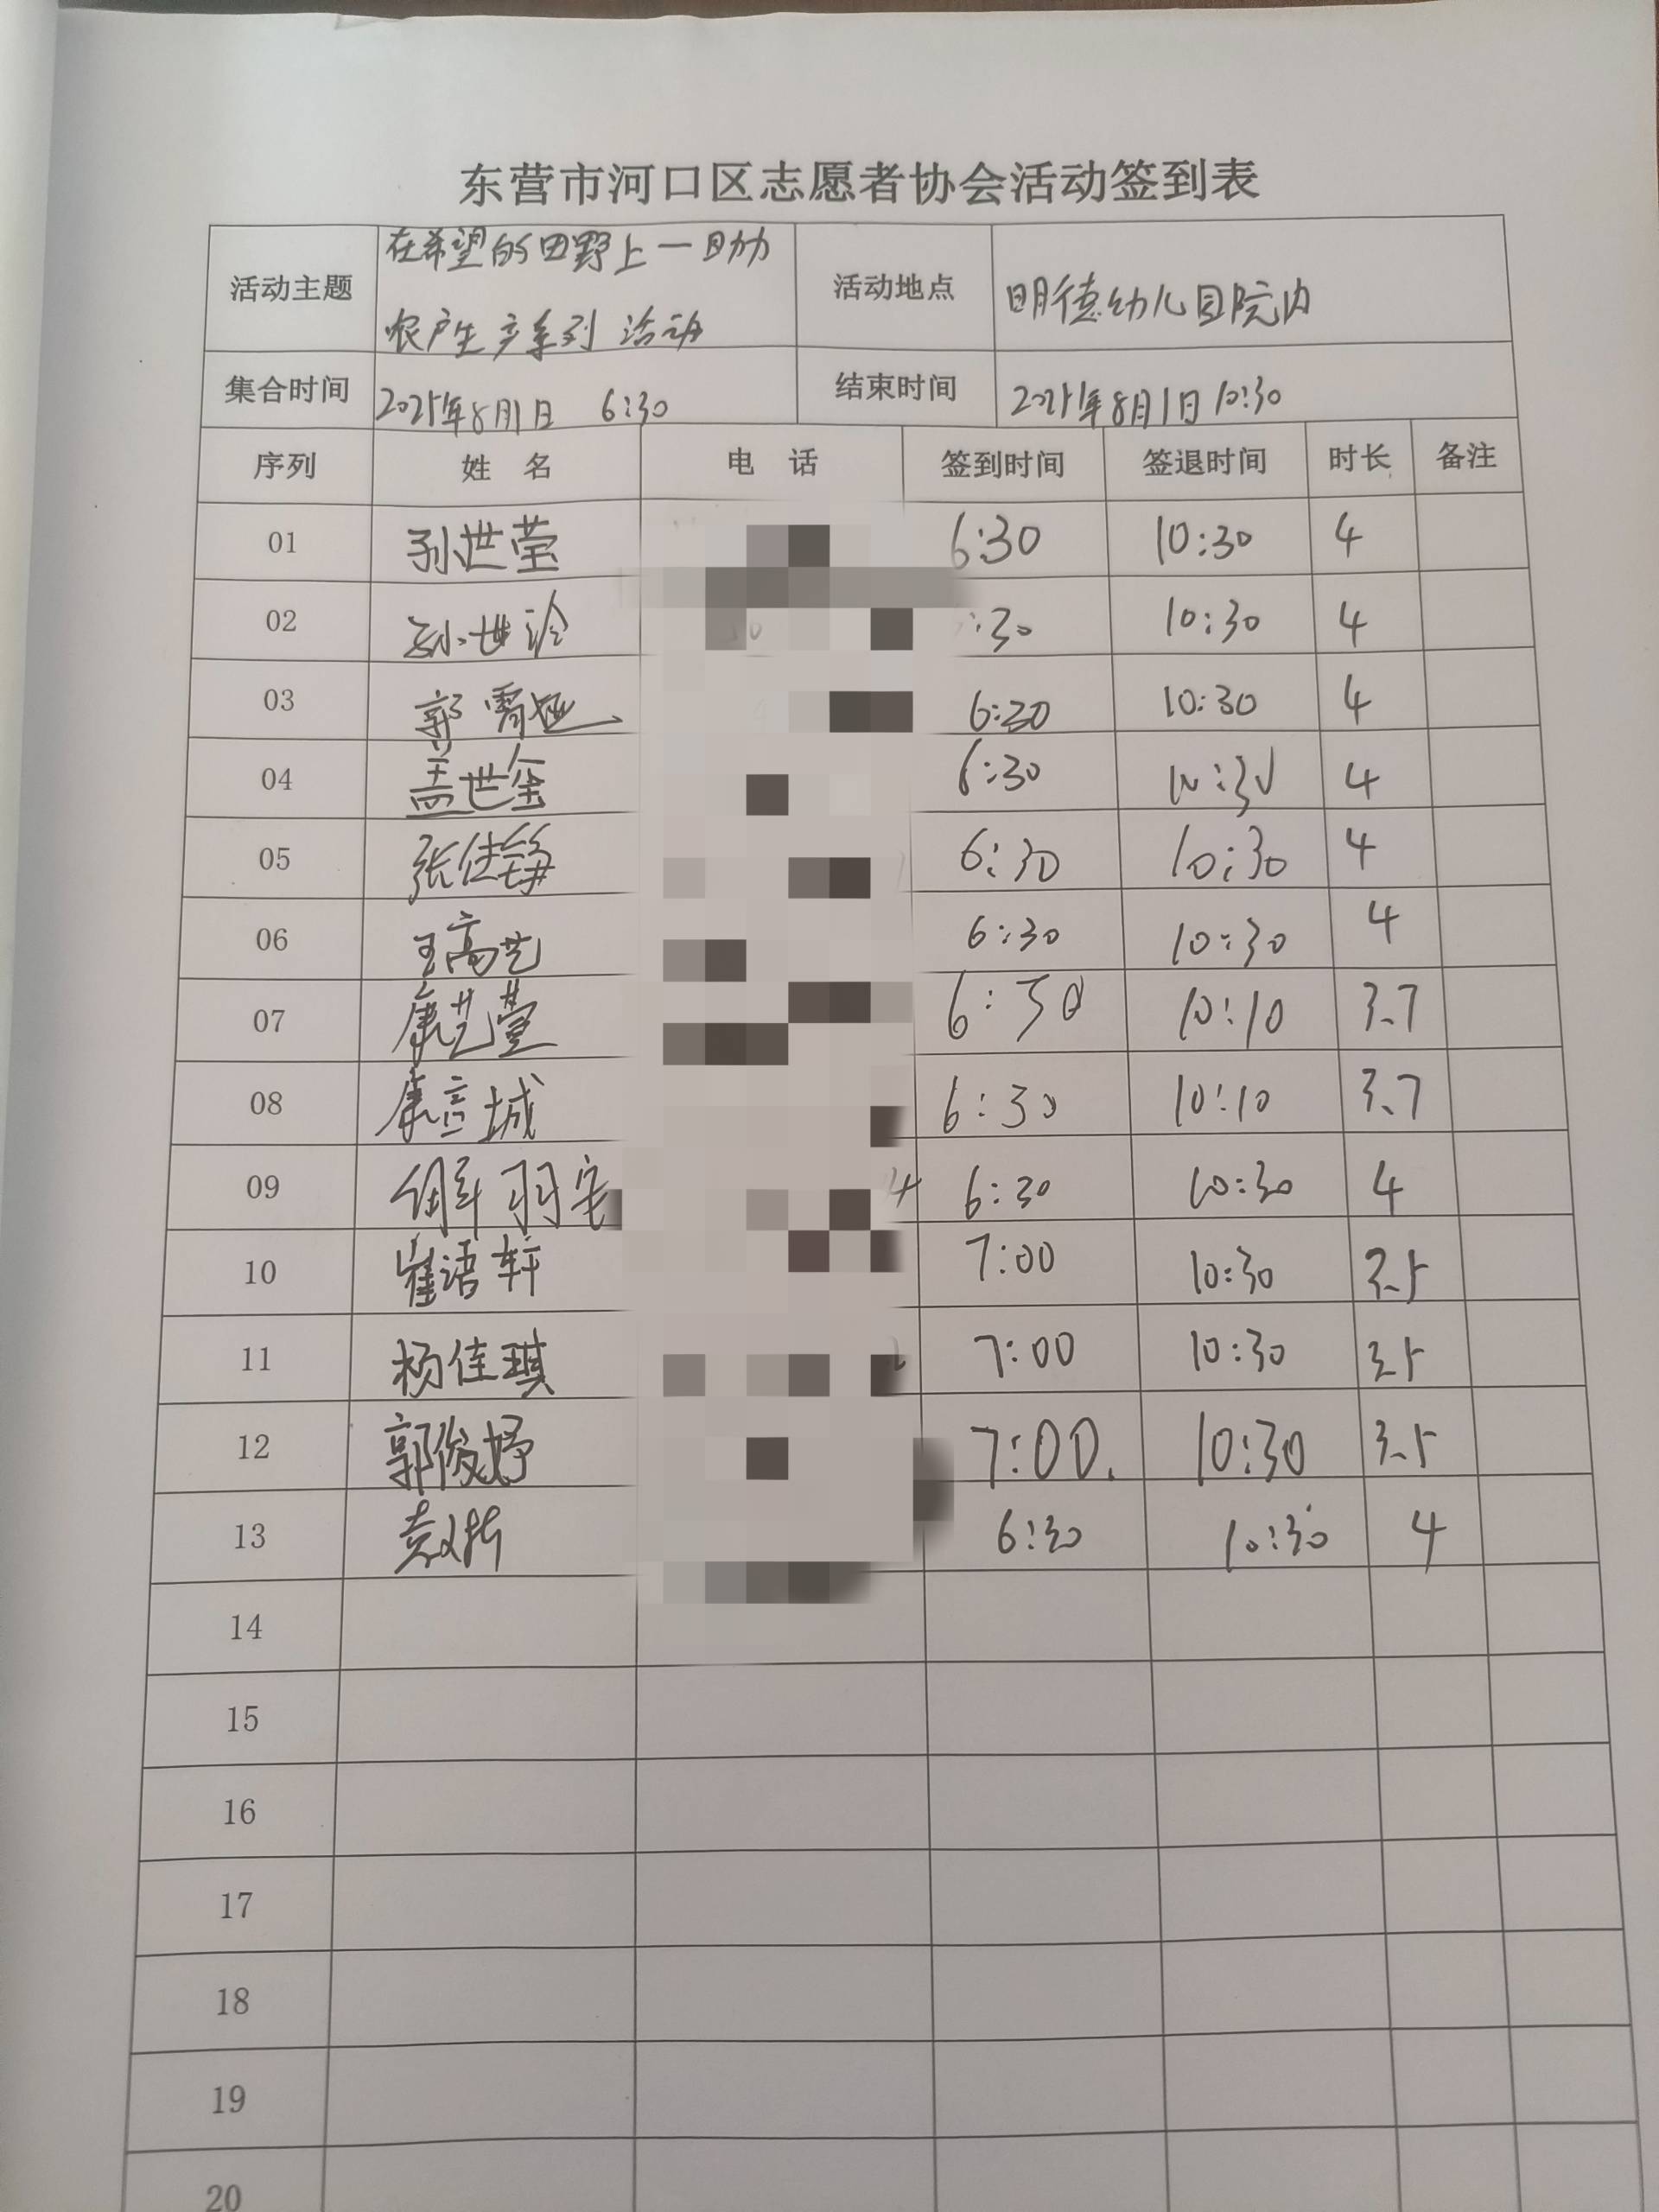 东营市河口区志愿者协会活动签到表
活动主题 在希望的田野上一助力农户生产系列活动 活动地点 明德幼儿园院内
集合时间 2025年8月1日 6:30 结束时间 2025年8月1日 10:30
序列 姓名 电话 签到时间 签退时间 时长 备注
01 孙世莹 6:30 10:30 4
02 孙世 :30 10:30 4
03 郭霄 6:30 10:30 4
04 盖世金 6:30 10:30 4
05 张佳铮 6:30 10:30 4
06 王高艺 6:30 10:30 4
07 康艺萱 6:30 10:10 3.7
08 康言城 6:30 10:10 3.7
09 羽宅 4 6:30 10:30 4
10 崔语轩 7:00 10:30 3.5
11 杨佳琪 7:00 10:30 3.5
12 郭俊妤 7:00. 10:30 3.5
13 6:30 10:30 4
14
15
16
17
18
19
20